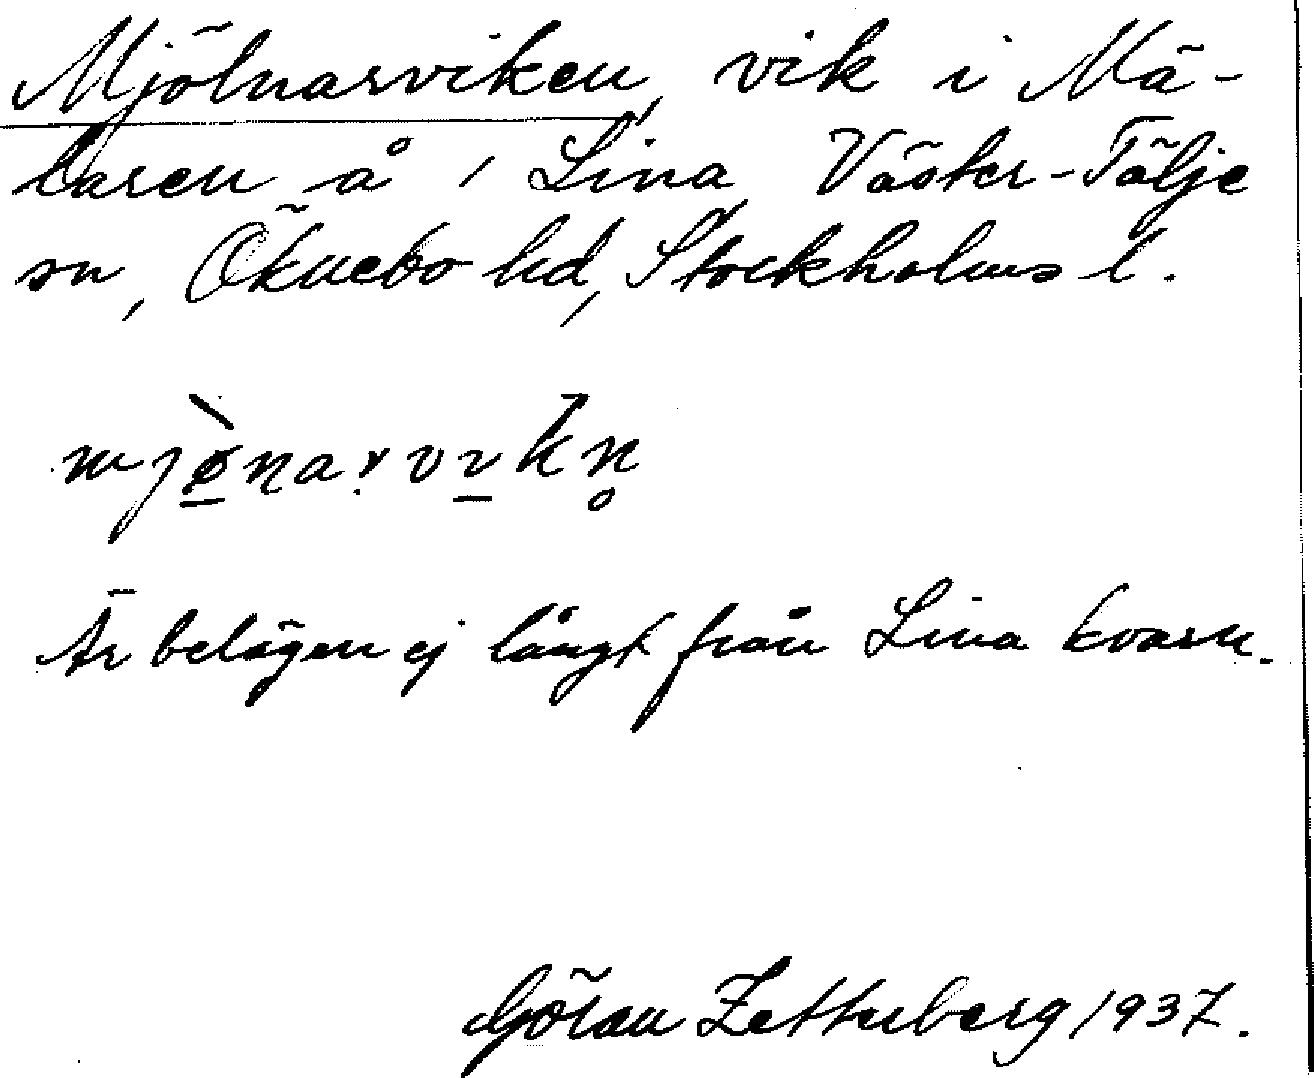 Mjölnarviken, vik i Mä-
laren å 1 Lina, Väster-Tälje
sn, Öknebo hd, Stockholms l.
Är belägen ej långt från Lina kvarn.
Göran Zetterberg 1937.